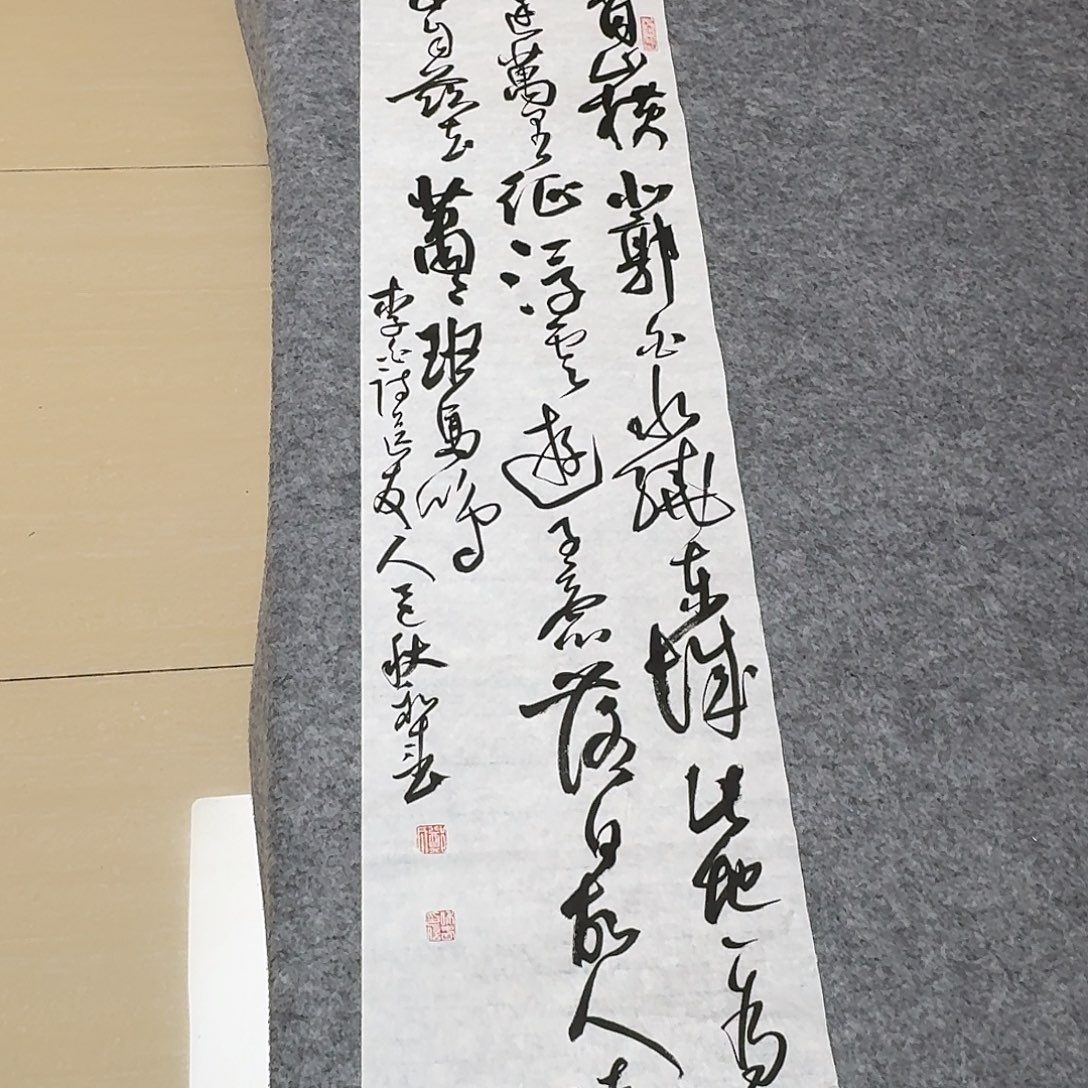 青山橫北郭白水繞東城此地一為
蓬萬里征浮雲遊子意落日故人
手自茲去蕭々班馬鳴
李白詩送友人秋書